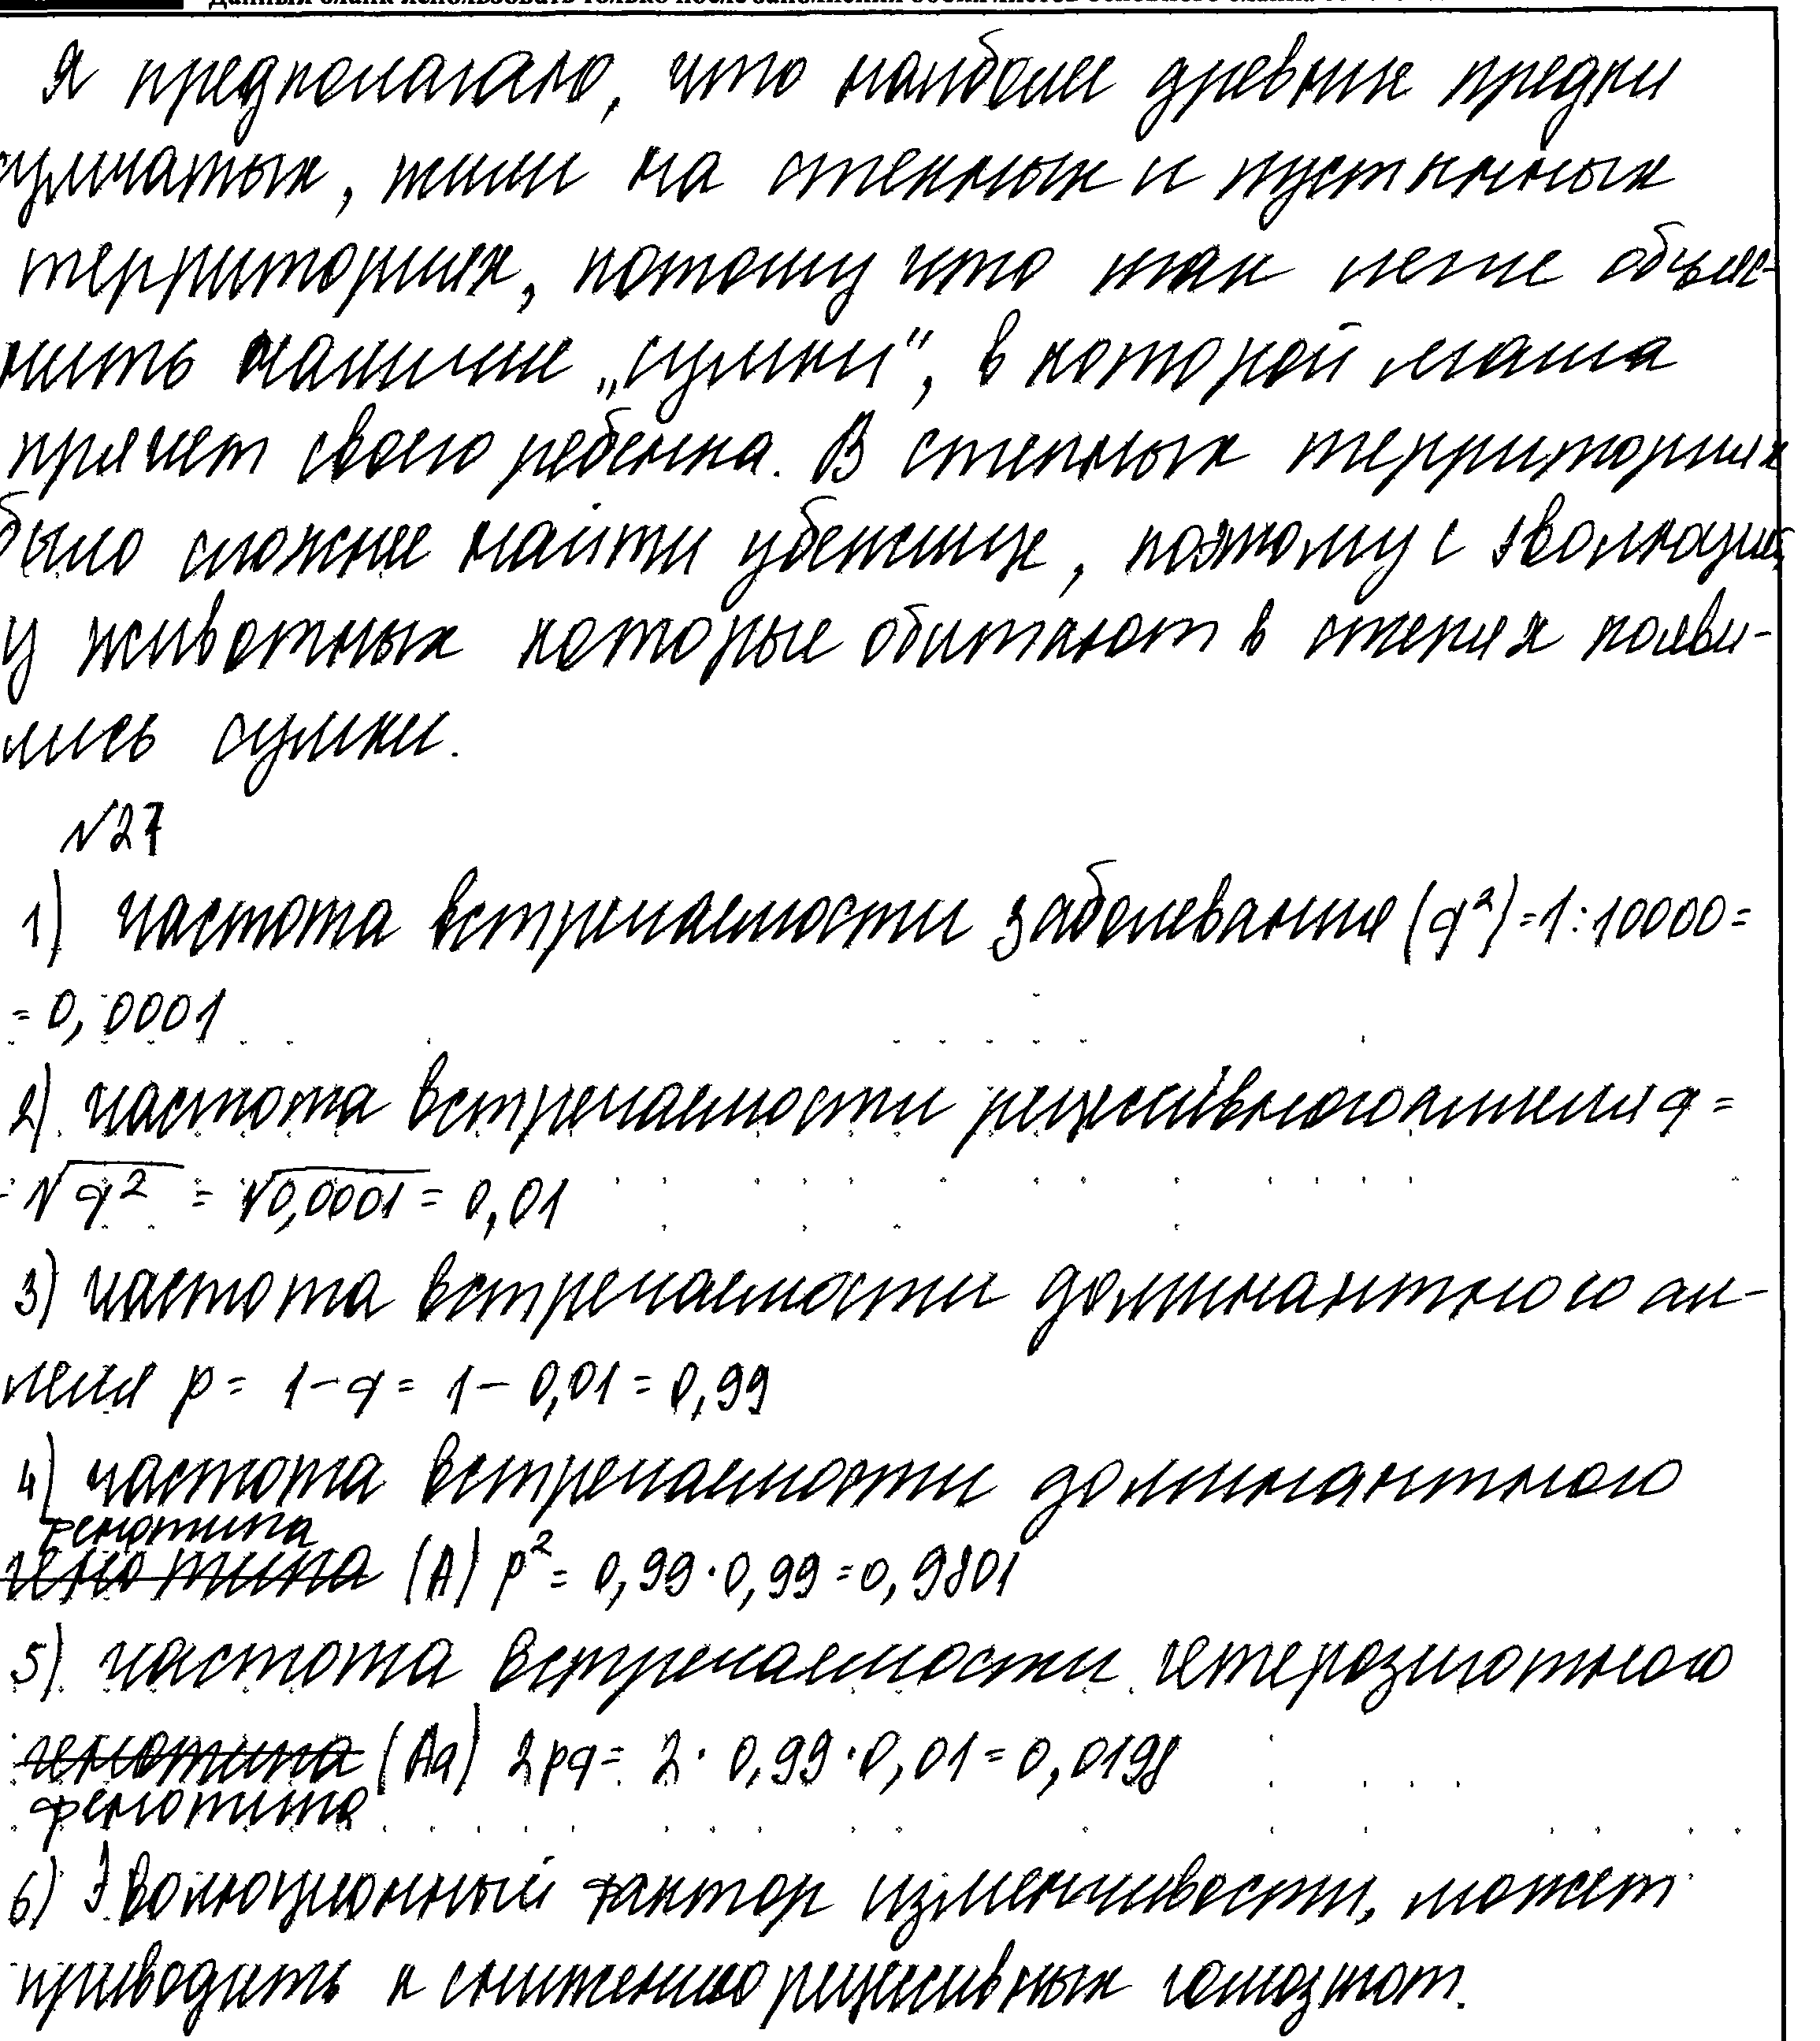 Я предполагаю, что наиболее древние предки
сумчатых, жили на степных и пустынных
территориях, потому что так легче объяс-
нить наличие „сумки", в которой мама
прячет своего ребенка. В степных территориях
было сложнее найти убежище, поэтому с эволюцией
у животных которые обитают в степях появи-
лись сумки.
№27
1) частота встречаемости заболевания (q²)=1:10000=
= 0,0001
2) частота встречаемости рецессивного аллеля q =
= √q² = √0,0001 = 0,01
3) частота встречаемости доминантного ал-
леля p = 1-q = 1 - 0,01 = 0,99
4) частота встречаемости доминантного
фенотипа
генотипа (A) p² = 0,99·0,99=0,9801
5) частота встречаемости гетерозиготного
генотипа (Aa) 2pq= 2·0,99·0,01=0,0198
фенотипа
6) Эволюционный фактор изменчивости, может
приводить к снижению рецессивных гомозигот.